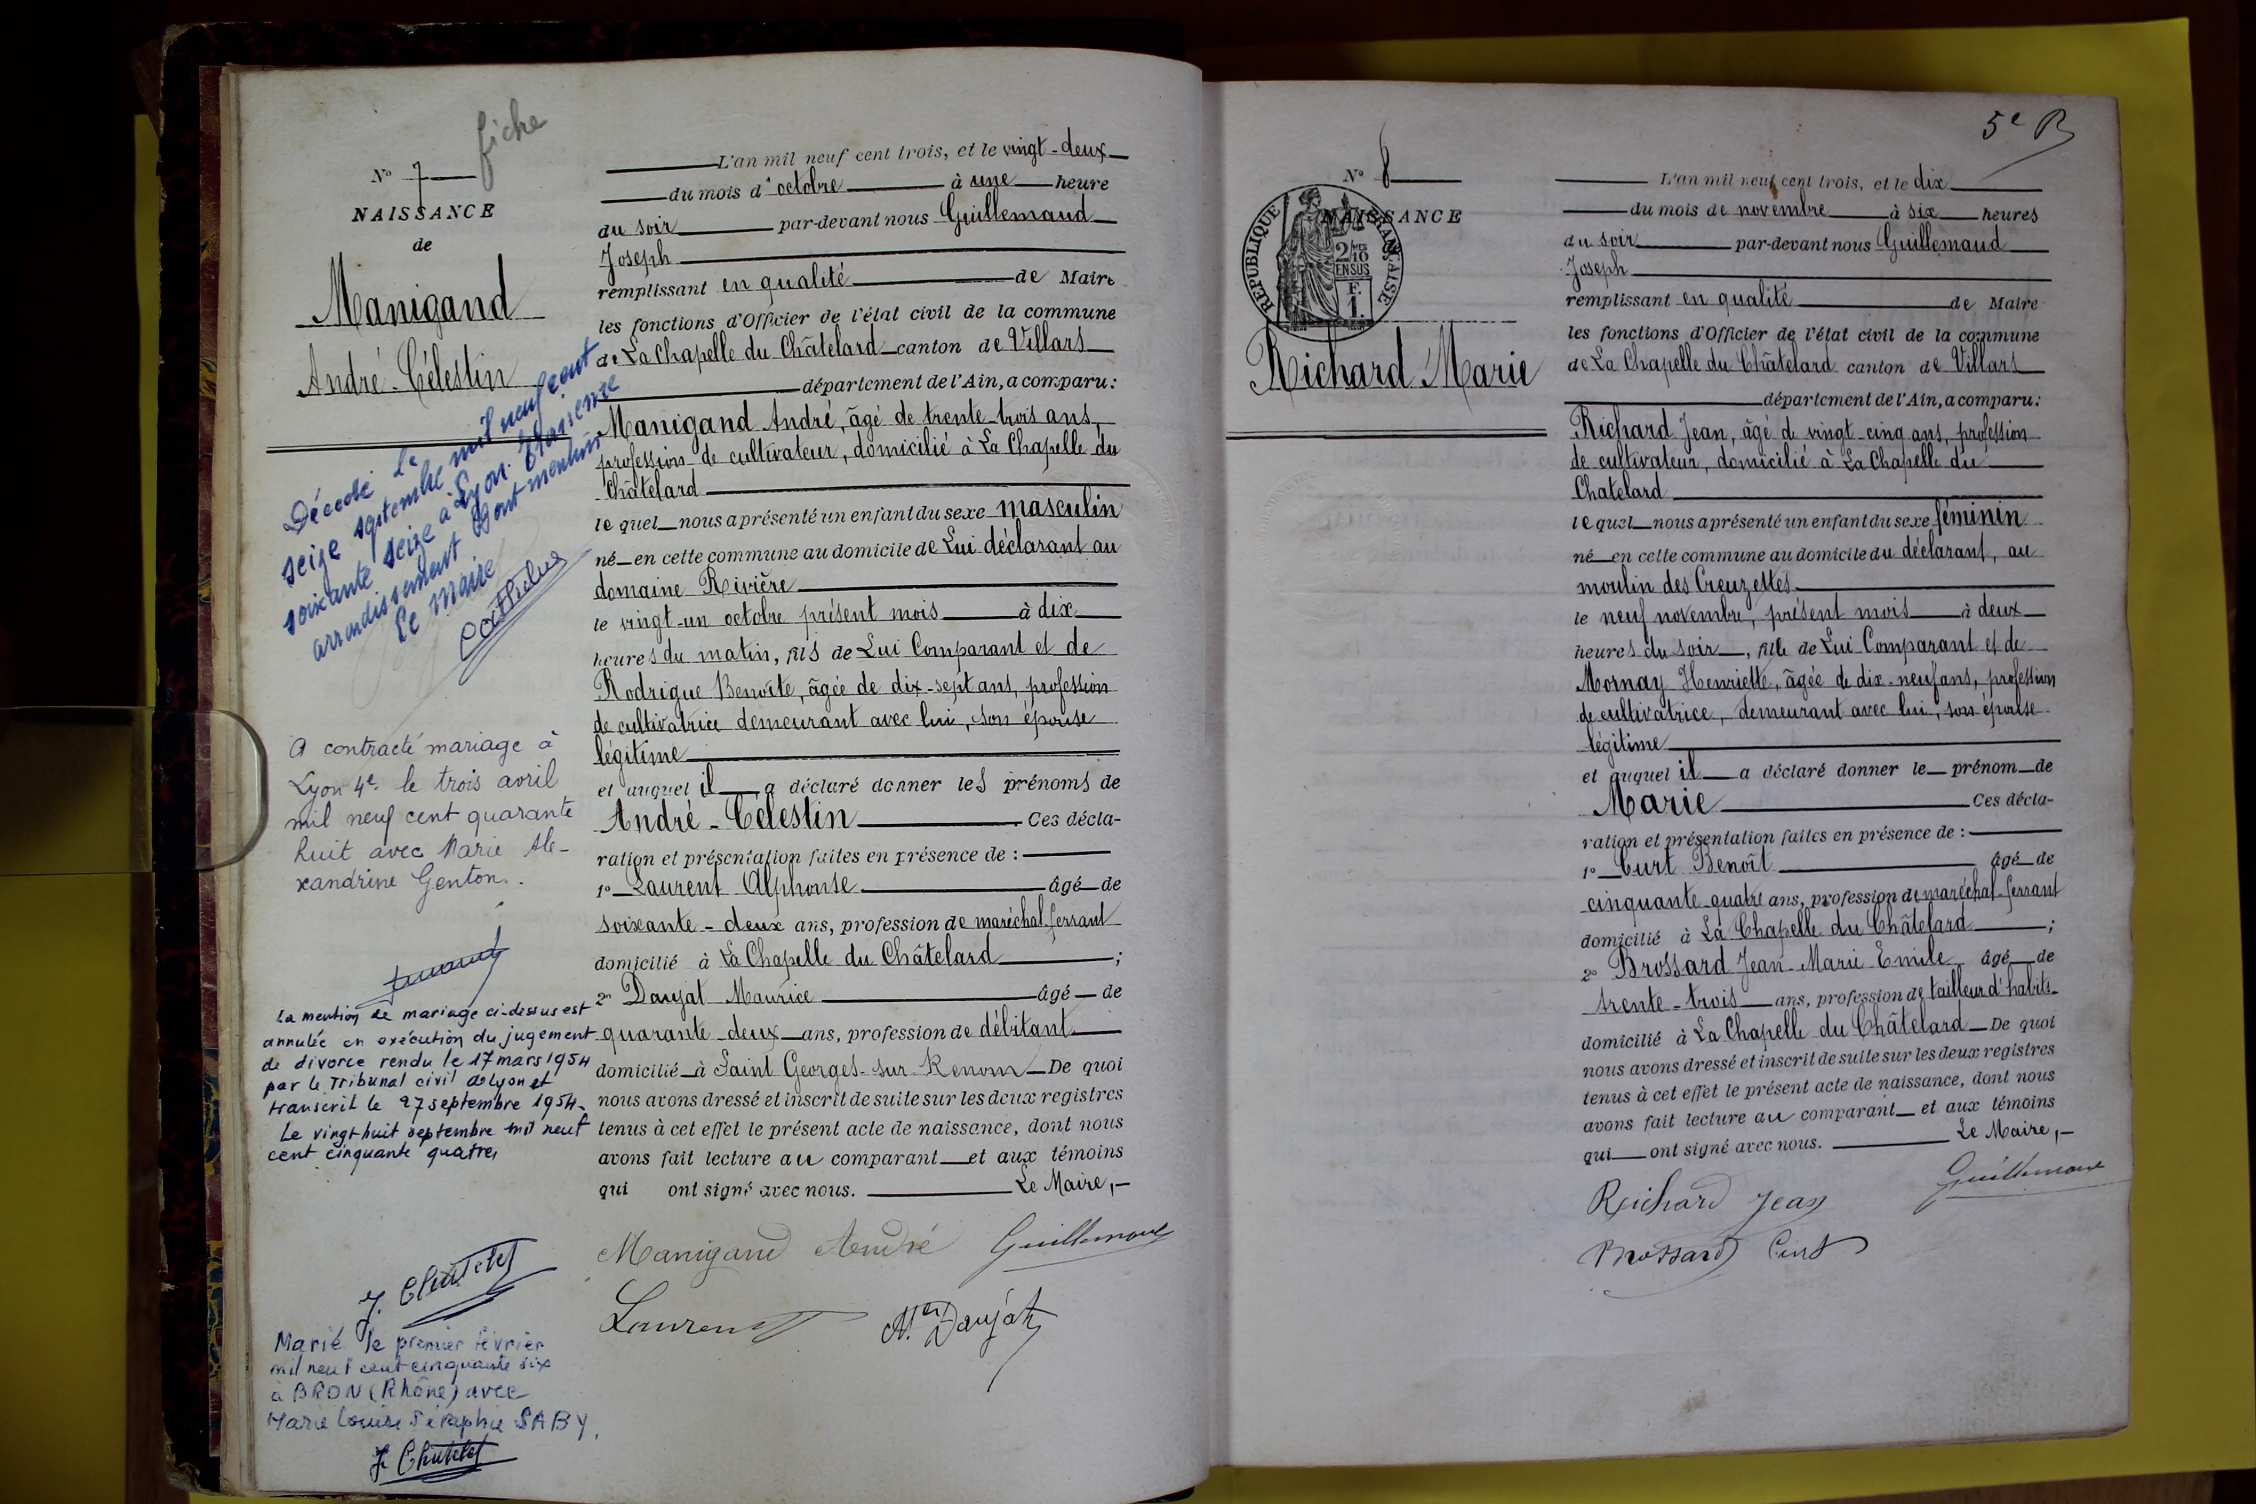 fiche
N° 7
NAISSANCE
de
Manigand
André-Célestin
Décédé le
seize septembre mil neuf cent
soixante seize à Lyon
arrondissement dont mention
Le Maire
A contracté mariage à
Lyon 4e le trois avril
mil neuf cent quarante
huit avec Marie Ale-
xandrine Genton.
La mention de mariage ci-dessus est
annulée en exécution du jugement
de divorce rendu le 17 mars 1954
par le Tribunal civil de Lyon et
transcrit le 27 septembre 1954.
Le vingt huit septembre mil neuf
cent cinquante quatre
Marié le premier février
mil neuf cent cinquante six
à BRON (Rhône) avec
Marie Louise Séraphie SABY.
L'an mil neuf cent trois, et le vingt-deux
du mois d'octobre à une heure
du soir par-devant nous Guillemaud
Joseph
remplissant en qualité de Maire
les fonctions d'Officier de l'état civil de la commune
de La Chapelle du Châtelard canton de Villars
département de l'Ain, a comparu:
Manigand André, âgé de trente-trois ans,
profession de cultivateur, domicilié à La Chapelle du
Châtelard
lequel nous a présenté un enfant du sexe masculin
né en cette commune au domicile de Lui déclarant au
domaine Rivière
le vingt-un octobre présent mois à dix
heures du matin, fils de Lui Comparant et de
Rodrigue Benoîte, âgée de dix-sept ans, profession
de cultivatrice demeurant avec lui, son épouse
légitime
et auquel il a déclaré donner les prénoms de
André-Célestin Ces décla-
ration et présentation faites en présence de :
1° Laurent Alphonse âgé de
soixante-deux ans, profession de maréchal-ferrant
domicilié à La Chapelle du Châtelard ;
2° Daujat Maurice âgé de
quarante-deux ans, profession de débitant
domicilié à Saint Georges-sur-Renom De quoi
nous avons dressé et inscrit de suite sur les deux registres
tenus à cet effet le présent acte de naissance, dont nous
avons fait lecture au comparant et aux témoins
qui ont signé avec nous. Le Maire,
Manigand André Guillemaud
Laurent Daujat
5e B
N° 8
NAISSANCE
RÉPUBLIQUE FRANÇAISE
2/10
EN SUS
F.
1.
Richard Marie
L'an mil neuf cent trois, et le dix
du mois de novembre à six heures
du soir par-devant nous Guillemaud
Joseph
remplissant en qualité de Maire
les fonctions d'Officier de l'état civil de la commune
de La Chapelle du Châtelard canton de Villars
département de l'Ain, a comparu:
Richard Jean, âgé de vingt-cinq ans, profession
de cultivateur, domicilié à La Chapelle du
Chatelard
lequel nous a présenté un enfant du sexe féminin
né en cette commune au domicile du déclarant, au
moulin des Creuzettes
le neuf novembre, présent mois à deux
heures du soir, fille de Lui Comparant et de
Mornay Henriette, âgée de dix-neuf ans, profession
de cultivatrice, demeurant avec lui, son épouse
légitime
et auquel il a déclaré donner le prénom de
Marie Ces décla-
ration et présentation faites en présence de :
1° Curt Benoît âgé de
cinquante-quatre ans, profession de maréchal-ferrant
domicilié à La Chapelle du Châtelard ;
2° Brossard Jean-Marie-Emile âgé de
trente-trois ans, profession de tailleur d'habits
domicilié à La Chapelle du Châtelard De quoi
nous avons dressé et inscrit de suite sur les deux registres
tenus à cet effet le présent acte de naissance, dont nous
avons fait lecture au comparant et aux témoins
qui ont signé avec nous. Le Maire,
Richard Jean Guillemaud
Brossard Curt